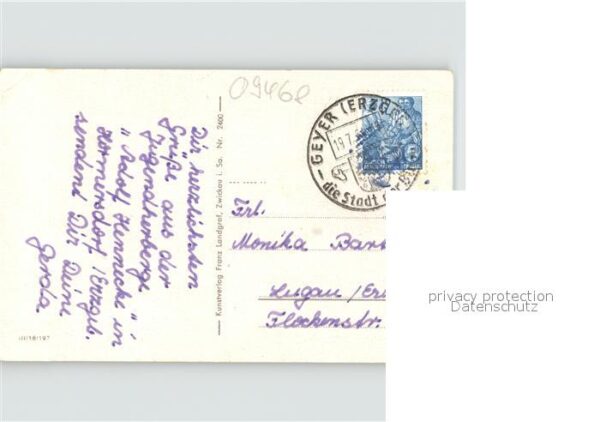 09468
Die herzlichsten
Grüße aus der
Jugendherberge
"Adolf Hennecke" in
Hormersdorf /Erzgeb.
sendent Dir Deine
Gerda.
Kunstverlag Franz Landgraf, Zwickau i. Sa. Nr. 2400
III/18/197
GEYER (ERZGEB
19.7.
die Stadt der
Frl.
Monika Bart
Lugau /Er
Flockenstr.
privacy protection
Datenschutz